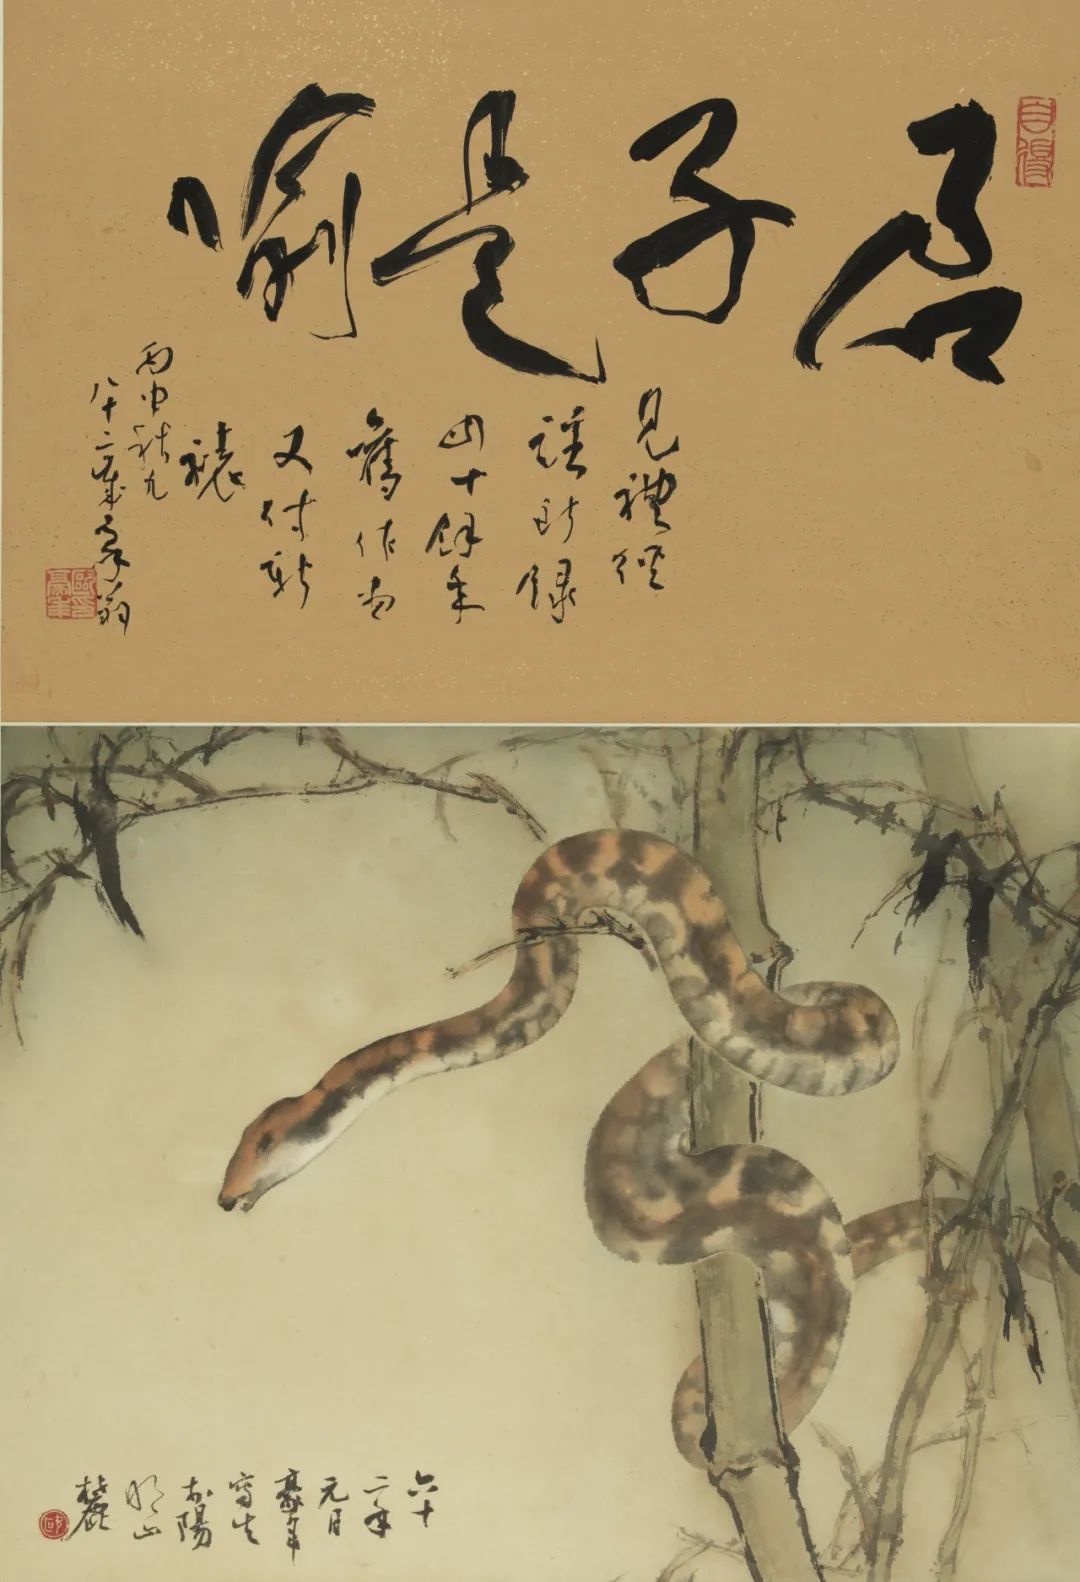 君子是喻
見禮經
註所錄
四十餘年
舊作
又付新
裱
丙申秋九
八十二歲豪翁
六十
二年
元月
豪年
寫生
於陽
明山
麓